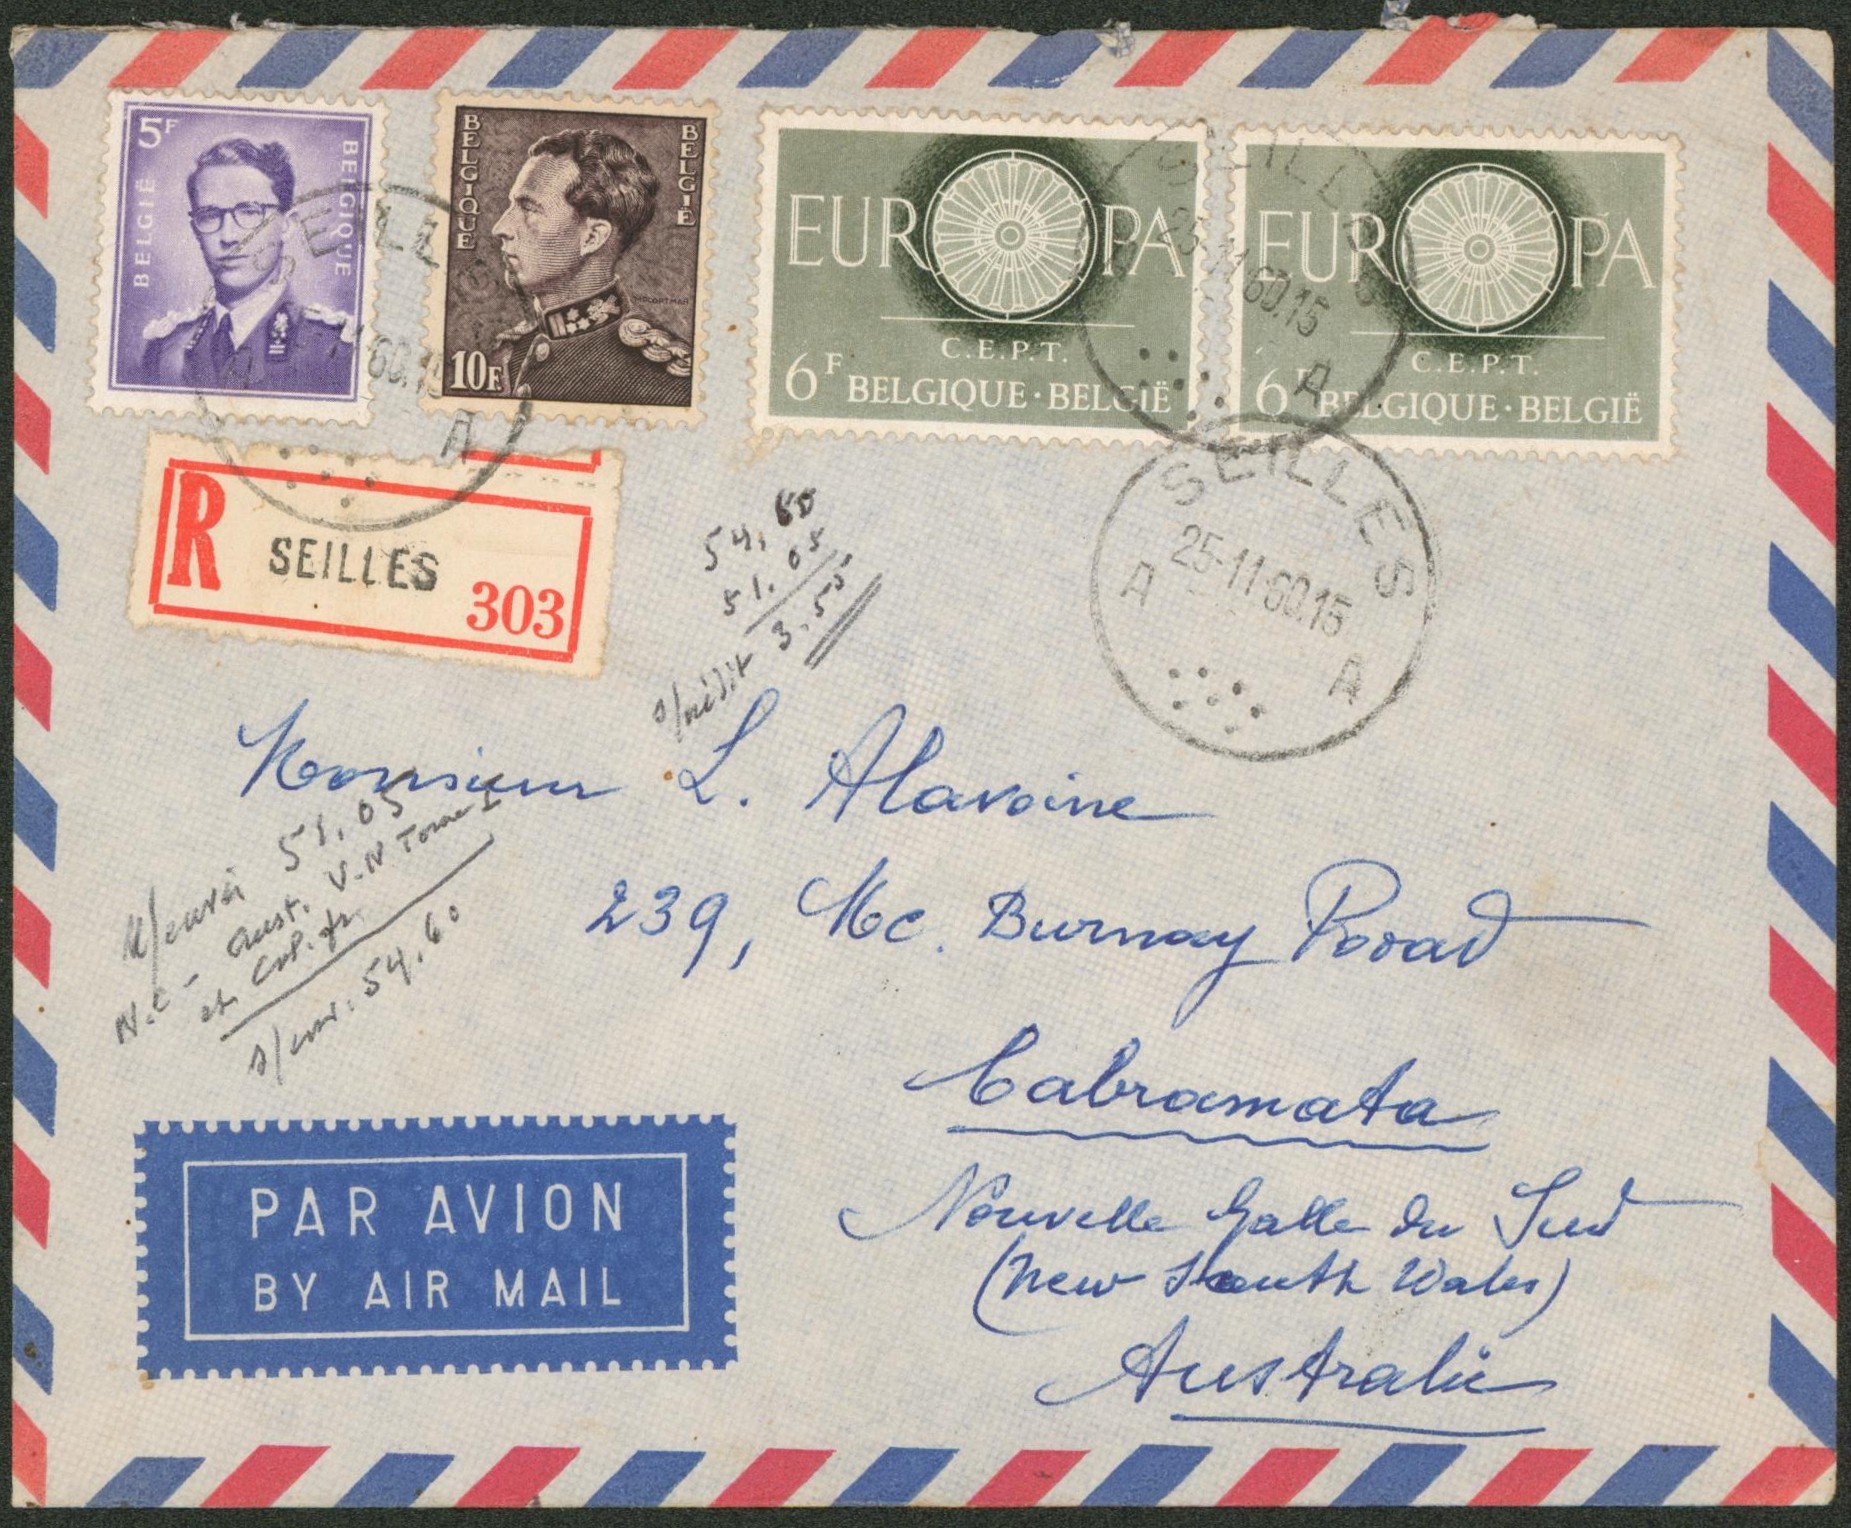 5F
BELGIË
BELGIQUE
BELGIQUE
BELGIË
10F
EUROPA
C.E.P.T.
6F BELGIQUE·BELGIË
EUROPA
C.E.P.T.
6F BELGIQUE·BELGIË
SEILLES
25-11-60.15
A
SEILLES
25-11-60.15
A A
R
SEILLES
303
54,60
51.05
3.55
Monsieur L. Alavoine
51,05
aust. V-N Tome I
54,60
239, Mc. Burnay Road
Cabramata
Nouvelle Galle du Sud
(New South Wales)
Australie
PAR AVION
BY AIR MAIL